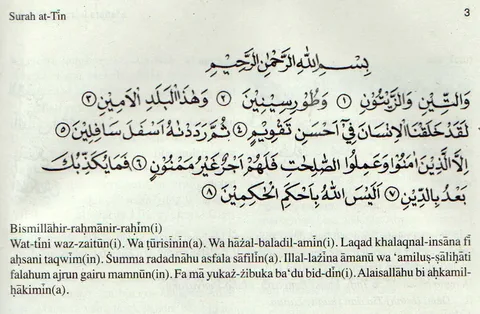 Surah at-Tīn
3
بِسْمِ اللهِ الرَّحْمٰنِ الرَّحِيْمِ
وَالتِّيْنِ وَالزَّيْتُوْنِ ۝١ وَطُوْرِسِيْنِيْنَ ۝٢ وَهٰذَا الْبَلَدِ الْاَمِيْنِ ۝٣
لَقَدْ خَلَقْنَا الْاِنْسَانَ فِيْٓ اَحْسَنِ تَقْوِيْمٍ ۝٤ ثُمَّ رَدَدْنٰهُ اَسْفَلَ سَافِلِيْنَ ۝٥
اِلَّا الَّذِيْنَ اٰمَنُوْا وَعَمِلُوا الصّٰلِحٰتِ فَلَهُمْ اَجْرٌ غَيْرُ مَمْنُوْنٍ ۝٦ فَمَا يُكَذِّبُكَ
بَعْدُ بِالدِّيْنِ ۝٧ اَلَيْسَ اللهُ بِاَحْكَمِ الْحٰكِمِيْنَ ۝٨
Bismillāhir-raḥmānir-raḥīm(i)
Wat-tīni waz-zaitūn(i). Wa ṭūrisīnīn(a). Wa hāżal-baladil-amīn(i). Laqad khalaqnal-insāna fī
aḥsani taqwīm(in). Šumma radadnāhu asfala sāfilīn(a). Illal-lażīna āmanū wa ‘amiluṣ-ṣāliḥāti
falahum ajrun gairu mamnūn(in). Fa mā yukaż-żibuka ba‘du bid-dīn(i). Alaisallāhu bi aḥkamil-
ḥākimīn(a).